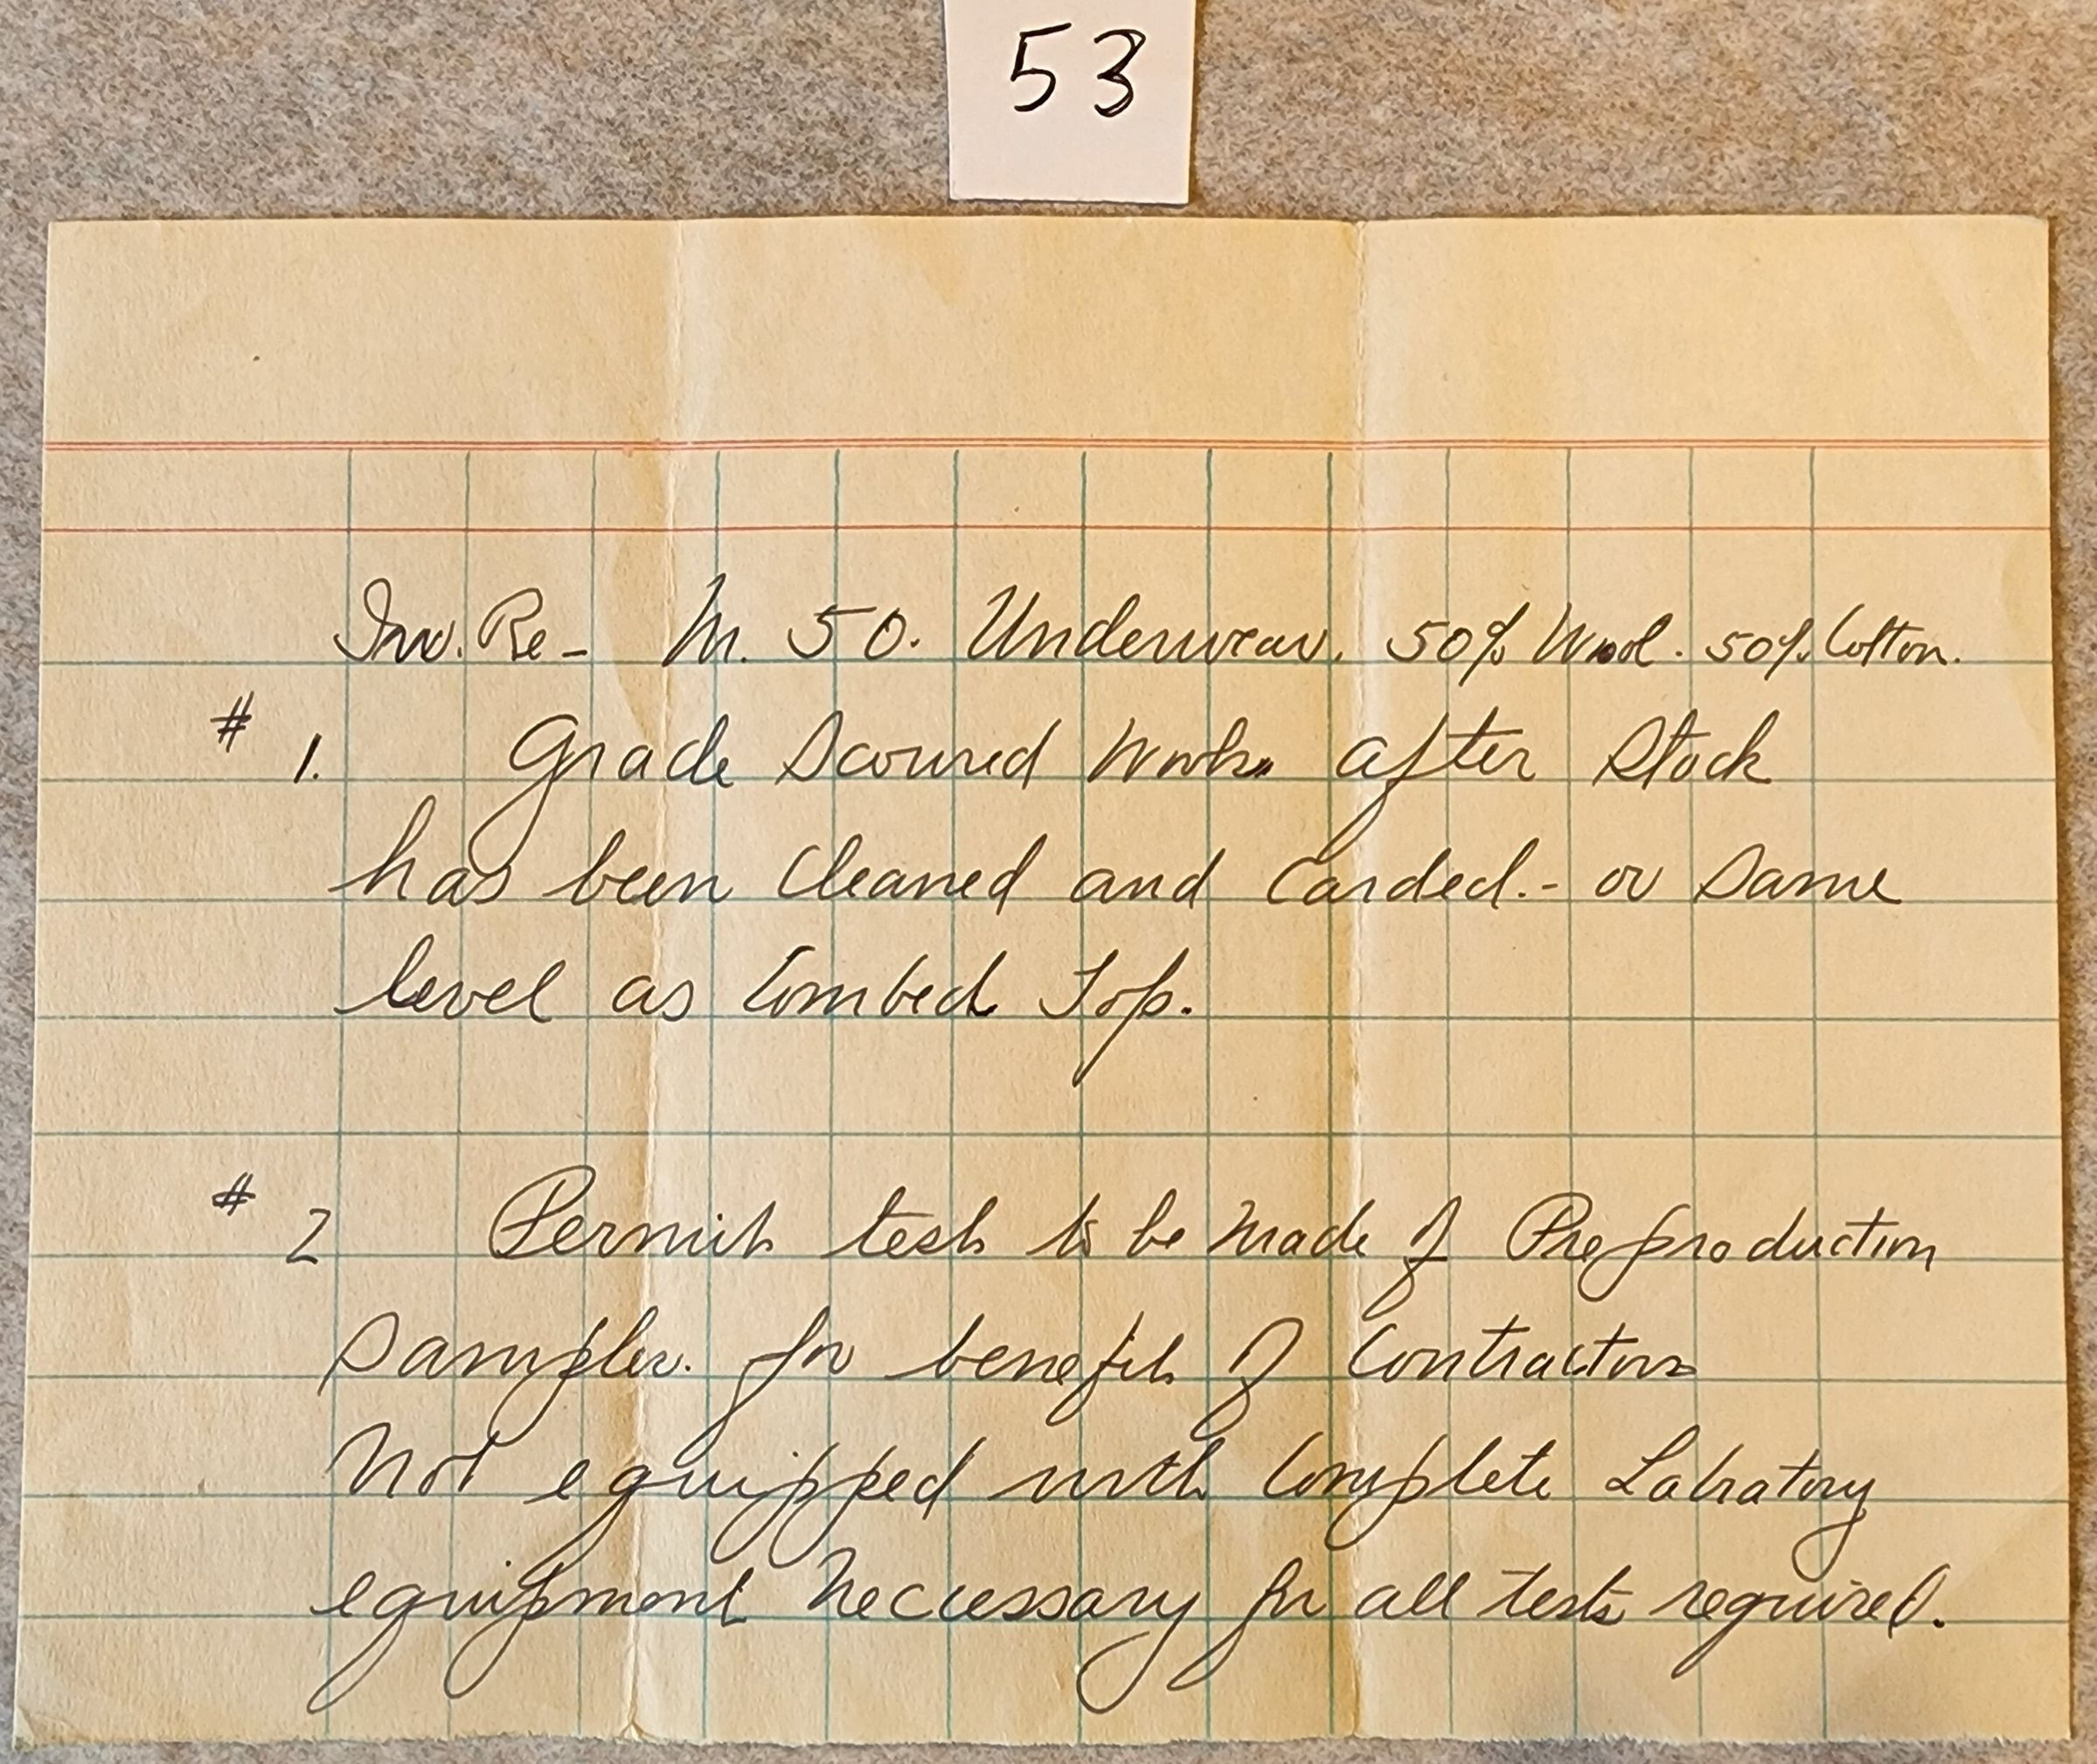 53
Inv. Re - M. 50. Underwear. 50% Wool. 50% Cotton.
# 1. Grade Scoured Wools after Stock
has been Cleaned and Carded. - or Same
level as Combed Top.
# 2 Permit tests to be Made of Preproduction
Samples. for benefit of Contractors
Not equipped with Complete Labratory
equipment Necessary for all tests required.